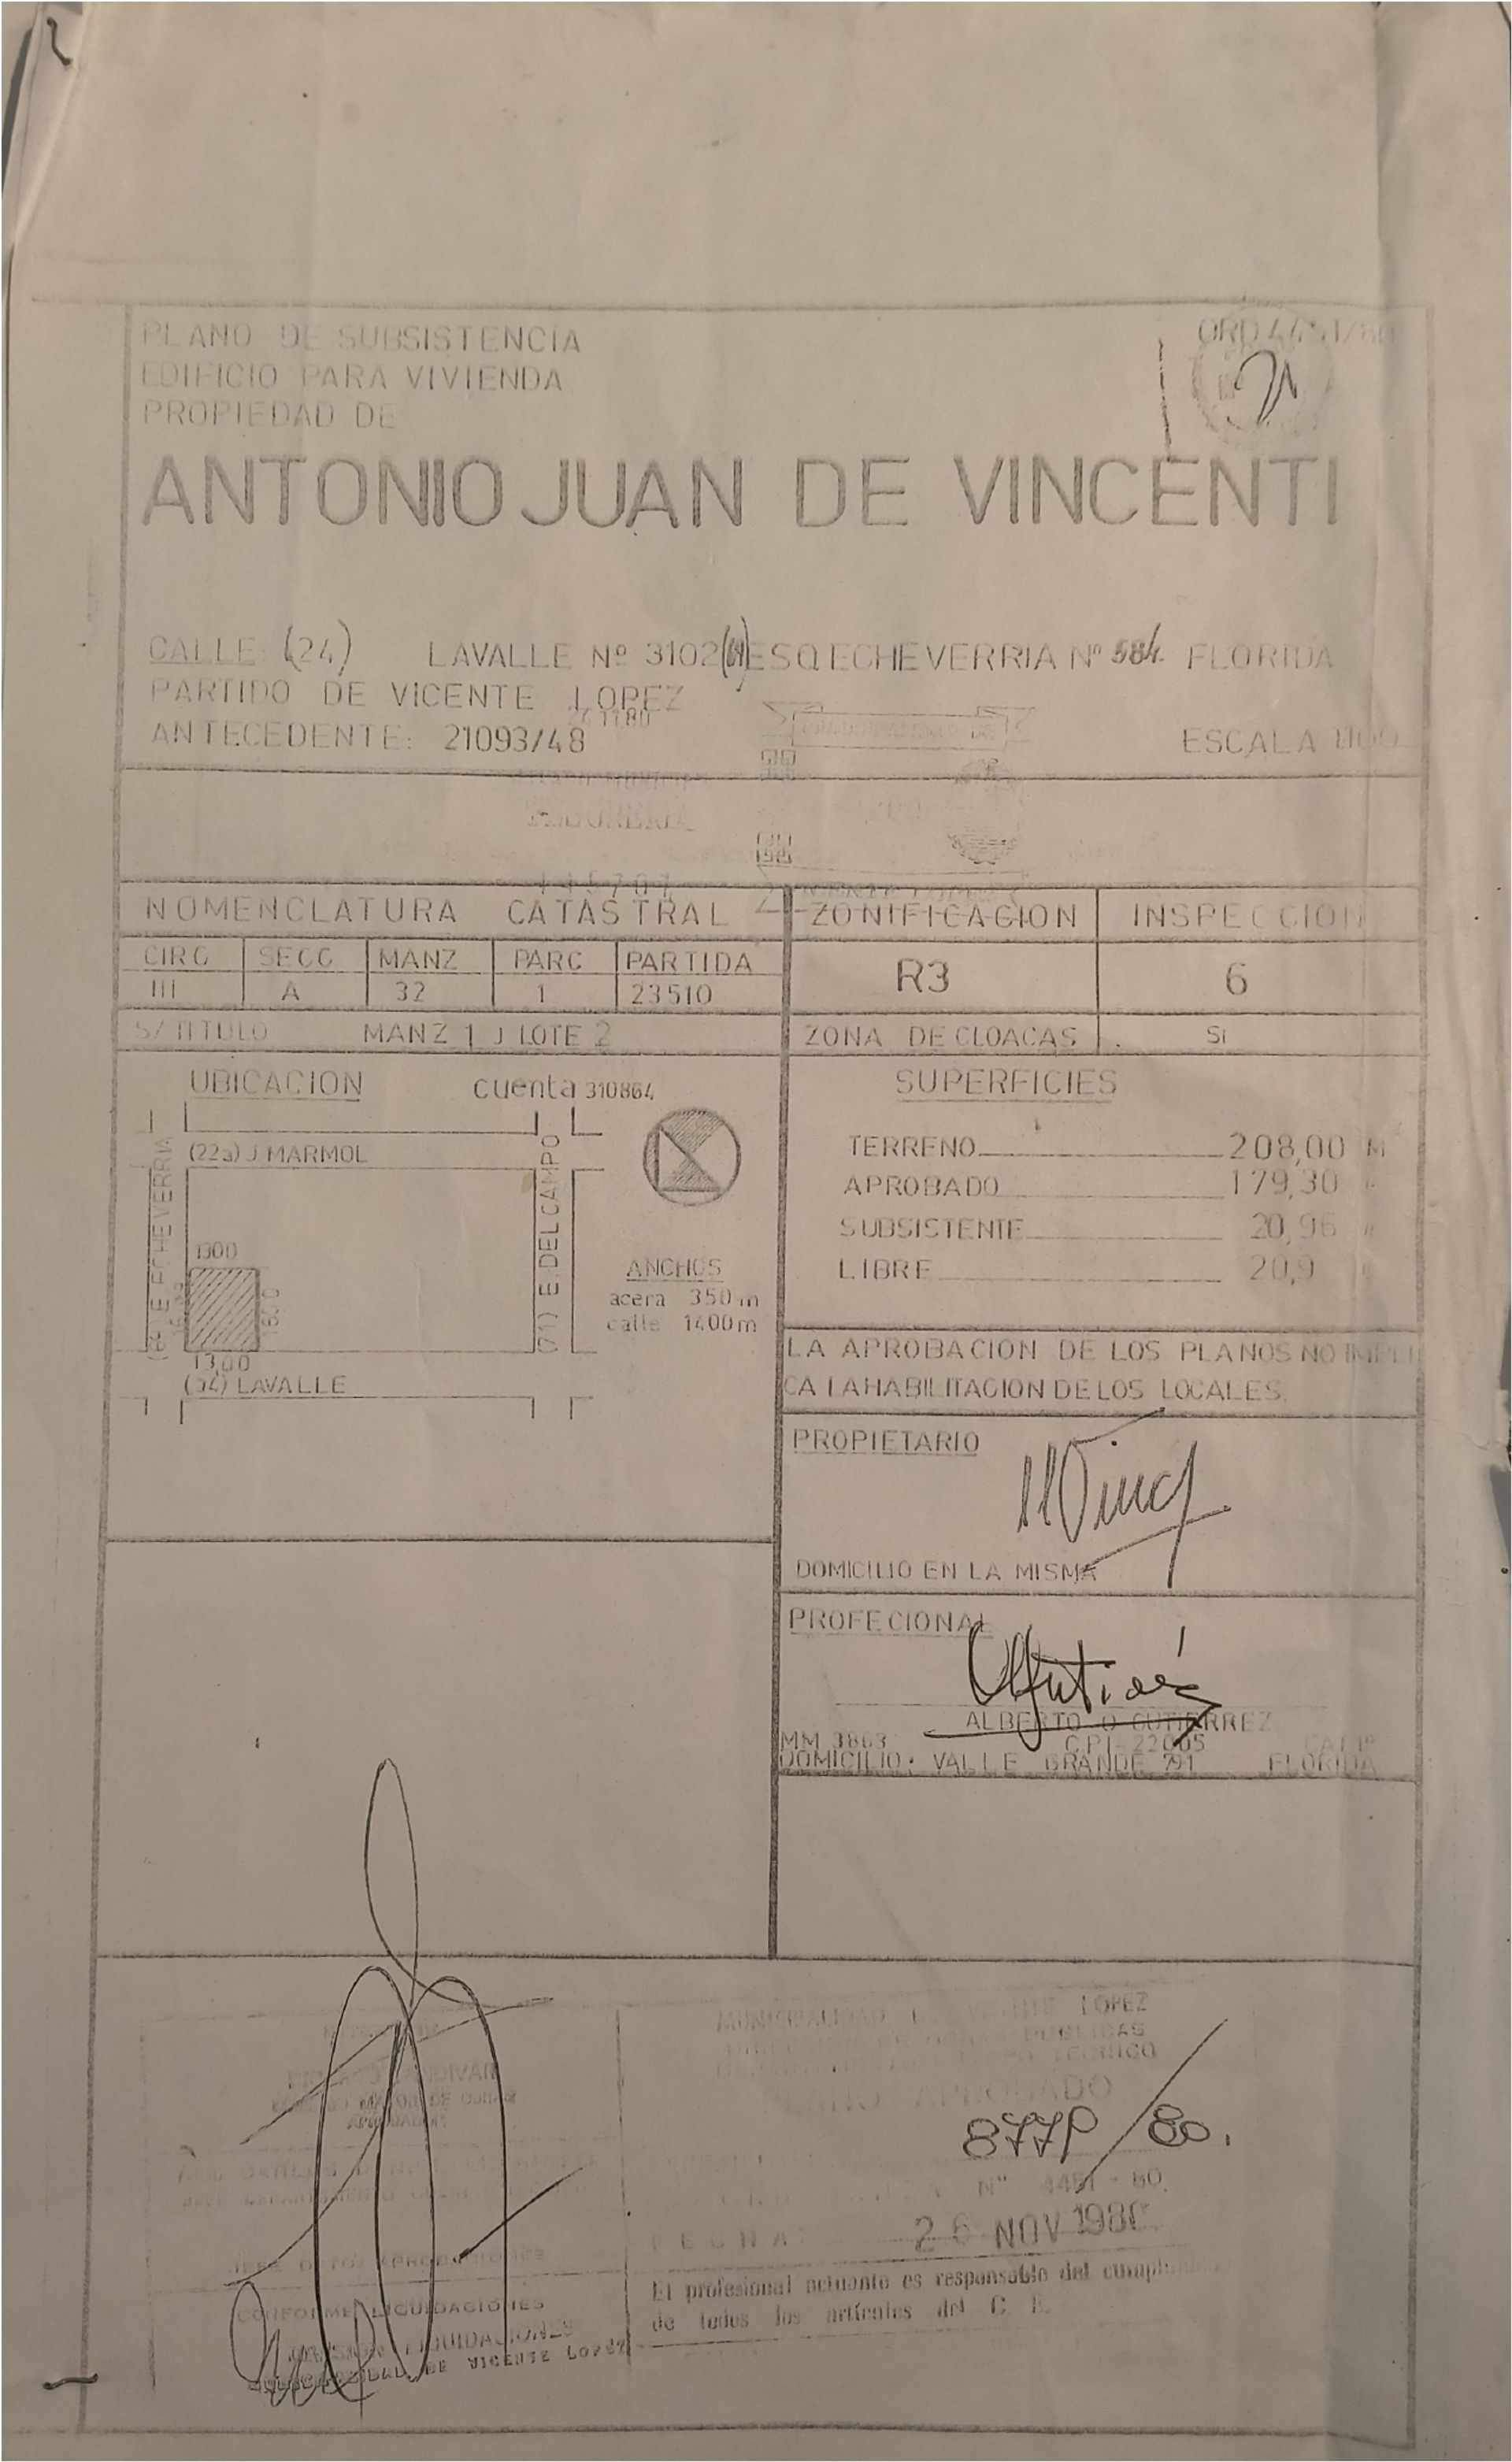 PLANO DE SUBSISTENCIA
ORD 4451/80
EDIFICIO PARA VIVIENDA
PROPIEDAD DE
ANTONIO JUAN DE VINCENTI
CALLE: (24) LAVALLE Nº 3102 ESQ ECHEVERRIA Nº 584 FLORIDA
PARTIDO DE VICENTE LOPEZ
ANTECEDENTE: 21093/48
ESCALA 1:100
NOMENCLATURA CATASTRAL
ZONIFICACION
INSPECCION
CIRC SECC MANZ PARC PARTIDA
III A 32 1 23510
R3
6
S/ TITULO MANZ 1 J LOTE 2
ZONA DE CLOACAS
SI
UBICACION
cuenta 310864
(22a) J MARMOL
E ECHEVERRIA
(71) E. DEL CAMPO
1300
13,00
(24) LAVALLE
ANCHOS
acera 350 m
calle 1400 m
SUPERFICIES
TERRENO 208,00 M
APROBADO 179,30 "
SUBSISTENTE 20,96 "
LIBRE 20,9
LA APROBACION DE LOS PLANOS NO IMPLI
CA LA HABILITACION DE LOS LOCALES.
PROPIETARIO
DOMICILIO EN LA MISMA
PROFECIONAL
ALBERTO O GUTIERREZ
MM 3863 CPI-22005
DOMICILIO: VALLE GRANDE 791 FLORIDA
MUNICIPALIDAD DE VICENTE LOPEZ
PUBLICAS
APROBADO
877P/80.
Nº 4451-80
FECHA:
26 NOV 1980
El profesional actuante es responsable del
de todos los artículos del C. E.
CONFORME LIQUIDACIONES
LIQUIDACIONES
MUNICIPALIDAD DE VICENTE LOPEZ